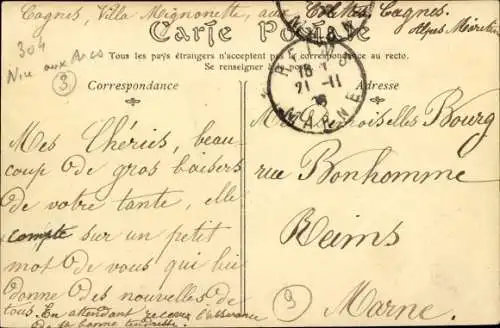 Cagnes, Villa Mignonette, aux Collettes, Cagnes,
Alpes Maritimes
Carte Postale
304
Tous les pays étrangers n'acceptent pas la correspondance au recto.
Se renseigner
Nice aux Arcs
3
REIMS
18
21-11
MARNE
Correspondance
Adresse
Mes Chéries, beau-
coup de gros baisers
de votre tante, elle
compte sur un petit
mot de vous qui lui
donne des nouvelles de
tous. En attendant recevez l'assurance
de sa bonne tendresse.
Mesdemoiselles Bourg
rue Bonhomme
Reims
Marne.
9